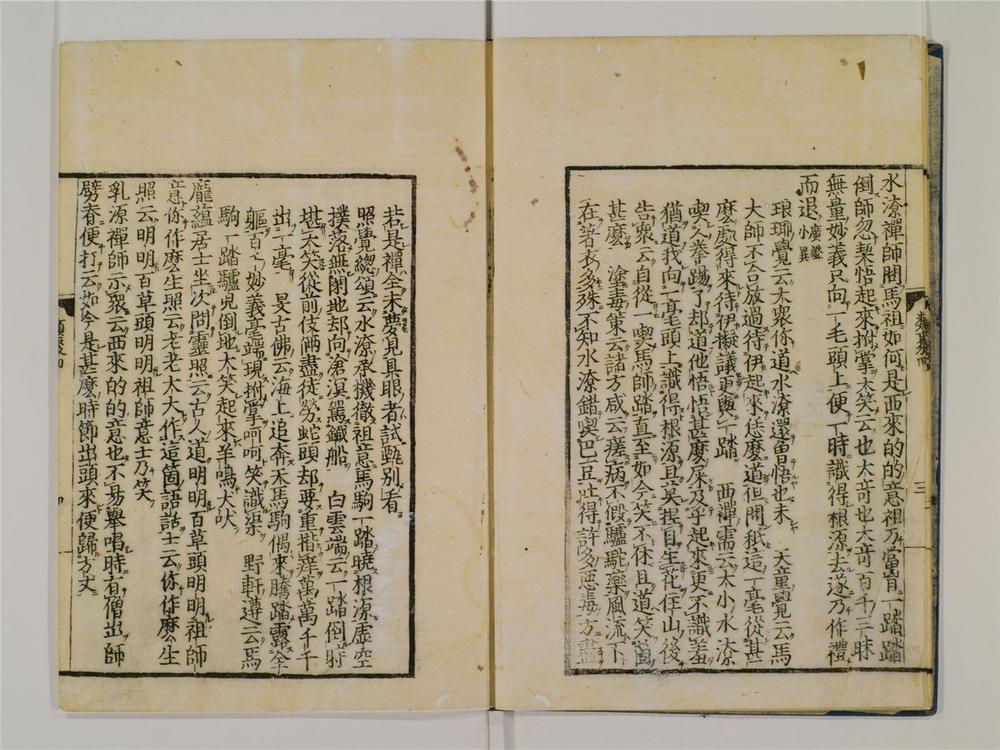 水潦禪師問馬祖如何是西來的的意祖乃當胷一踏踏
倒師忽契悟起來拊掌大笑云也大奇也大奇百千三昧
無量妙義只向一毛頭上便一時識得根源去遂乃作禮
而退廣鑑小異
瑯瑘覺云大衆你道水潦還曾悟也未 天童覺云馬
大師不合放過待伊起來恁麽道但問秖這一毫從甚
麽處得來待伊擬議更與一踏 西禪需云大小水潦
喫人拳踢了却道他悟悟甚麽屎及乎起來更不識羞
猶道我向一毫頭上識得根源且莫捏目生花住山後
告衆云自從一喫馬師踏直至如今笑不休且道笑箇
甚麽 塗毒策云諸方咸云瘥病不假驢駞藥風流不
在著衣多殊不知水潦錯喫巴豆許得許多惡毒方盡
三
若是禪人未夢見具眼者試甄別看
照覺總頌云水潦承機徹祖意馬駒一踏曉根源虛空
撲落無閑地却向滄溟駕鐵船 白雲端云一踏倒時
堪大笑從前伎倆盡徒勞蛇頭却要重揩痒萬萬千千
出一毫 旻古佛云海上追奔天馬駒偶來騰踏露全
軀百千妙義毫端現拊掌呵呵笑識渠 野軒遵云馬
駒一踏驢兒倒地大笑起來羊鳴犬吠
龐蘊居士坐次問靈照云古人道明明百草頭明明祖師
意你作麽生照云老老大大作這箇語話士云你作麽生
照云明明百草頭明明祖師意士乃笑
乳源禪師示衆云西來的的意也不易舉唱時有僧出師
劈脊便打云如今是甚麽時節出頭來便歸方丈